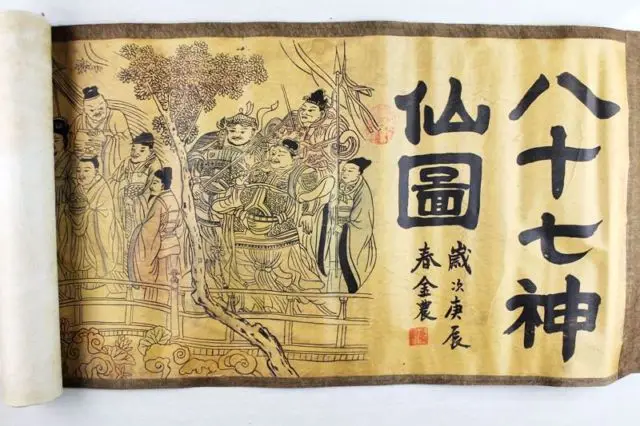 八十七神
仙圖
歲次庚辰
春金農